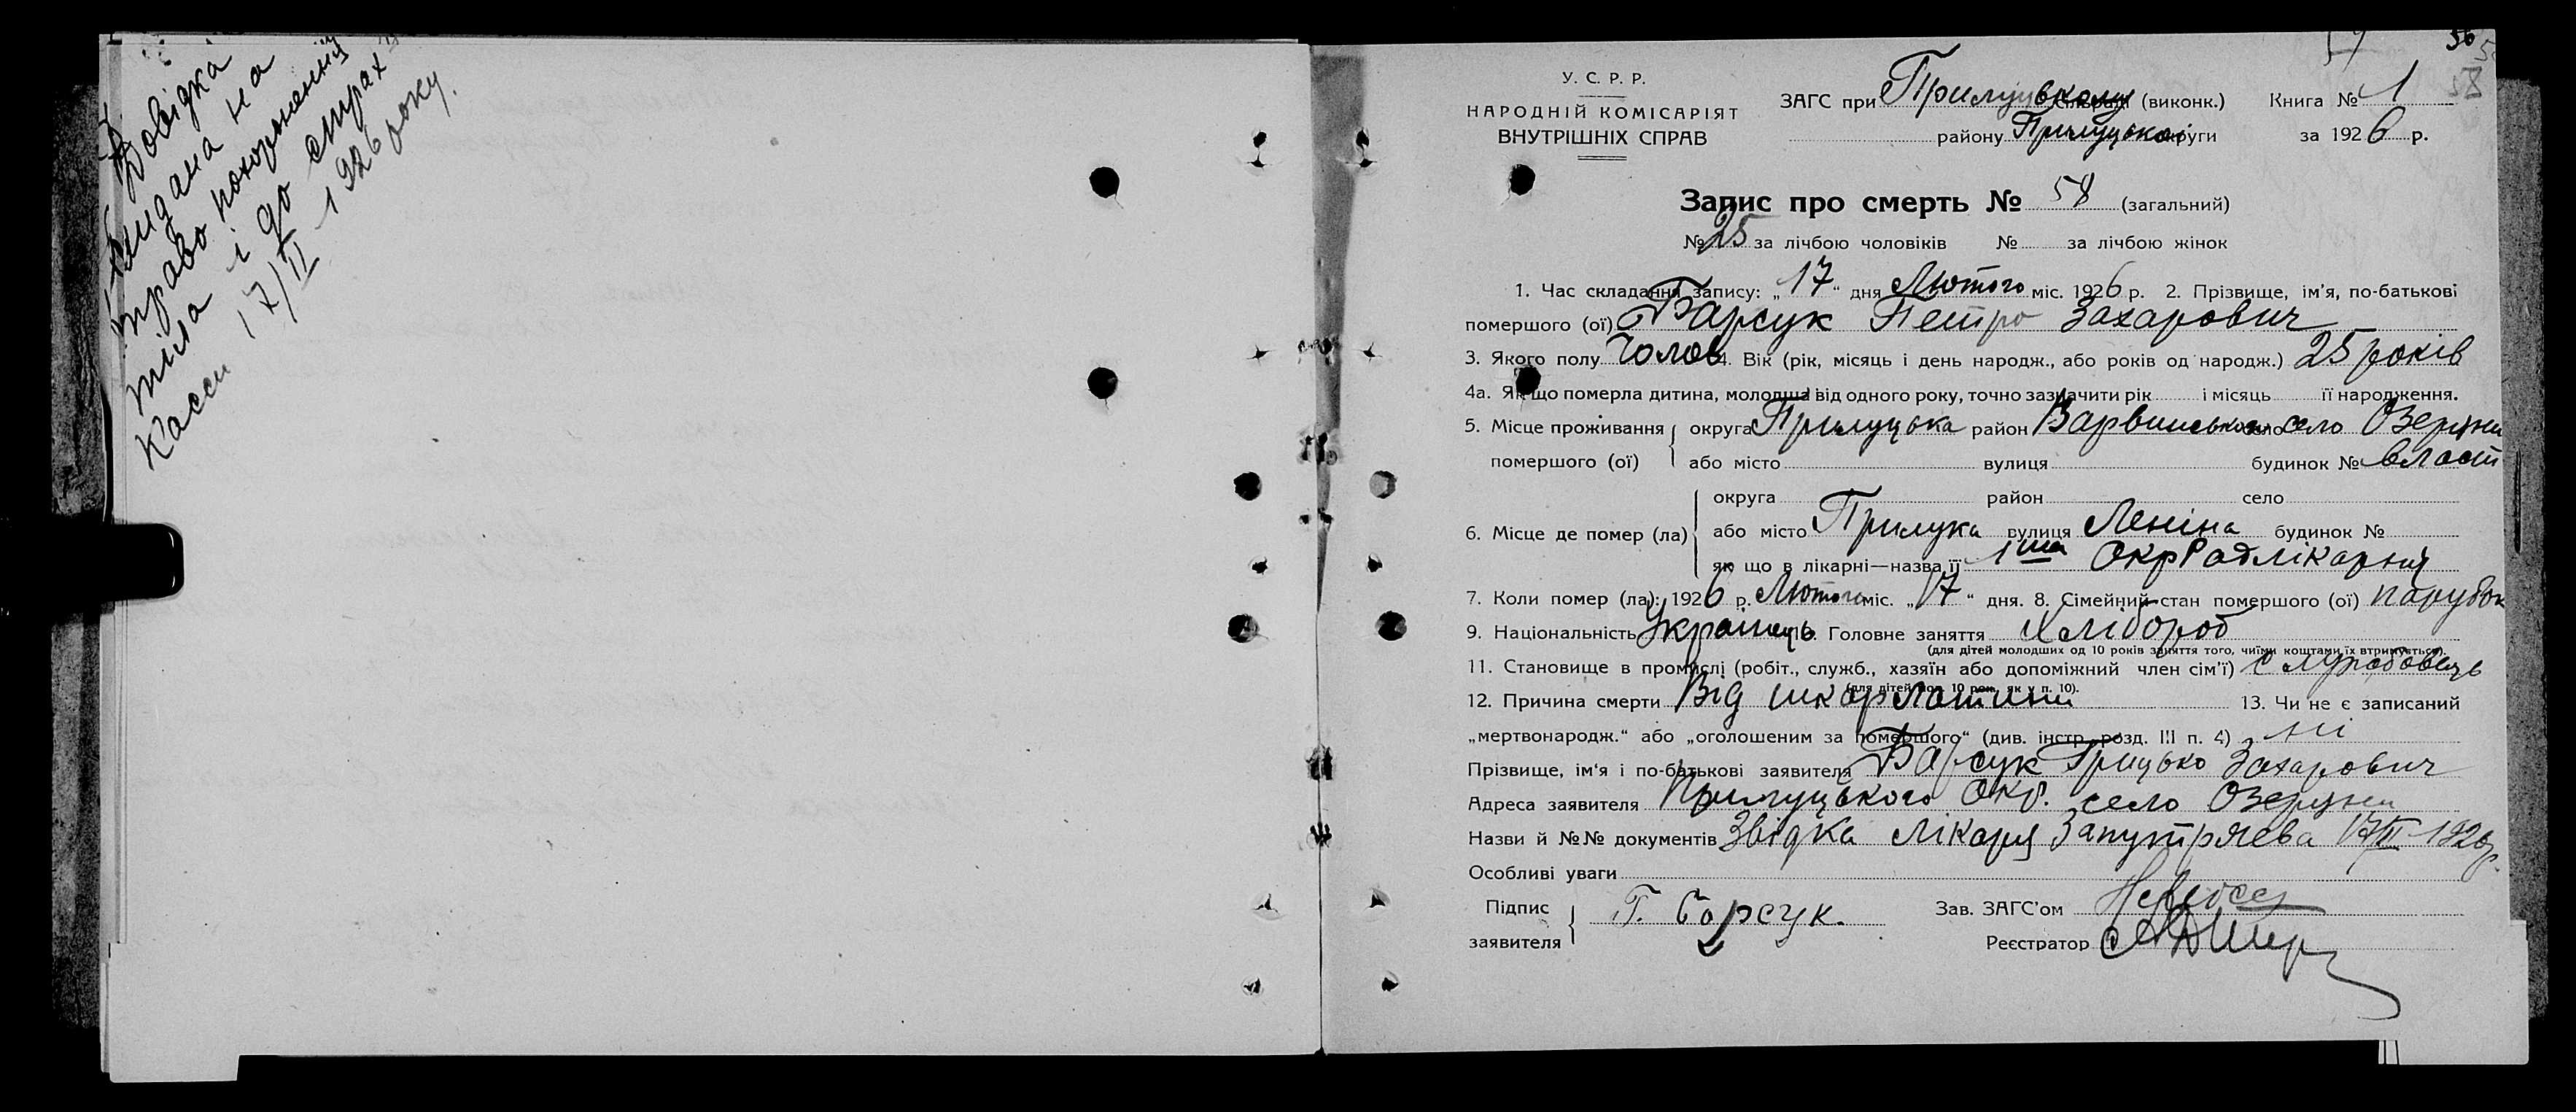 Довідка
видана на
право похоронення
тіла і до страх
Касси 17/II 1926 року.
56
58
У. С. Р. Р.
НАРОДНІЙ КОМІСАРІЯТ
ВНУТРІШНІХ СПРАВ
ЗАГС при Прилуцькому (виконк.) Книга № 1
району Прилуцької округи за 1926 р.
Запис про смерть № 58 (загальний)
№ 25 за лічбою чоловіків № за лічбою жінок
1. Час складання запису: „17“ дня Лютого міс. 1926 р. 2. Прізвище, ім’я, по-батькові
помершого (ої) Барсук Петро Захарович
3. Якого полу Чолов 4. Вік (рік, місяць і день народж., або років од народж.) 25 років
4а. Як що померла дитина, молодша від одного року, точно зазначити рік і місяць її народження.
5. Місце проживання помершого (ої) округа Прилуцька район Варвинського село Озеряни
або місто вулиця будинок № власн
6. Місце де помер (ла) округа район село
або місто Прилука вулиця Леніна будинок №
як що в лікарні—назва її 1ша ОкрРадлікарня
7. Коли помер (ла): 1926 р. Лютого міс. „17“ дня. 8. Сімейний стан помершого (ої) парубок
9. Національність Українець 10. Головне заняття Хлібороб
(для дітей молодших од 10 років заняття того, чиїми коштами їх втримується).
11. Становище в промислі (робіт., служб., хазяїн або допоміжний член сім’ї)
(для дітей мол. 10 рок. як у п. 10).
12. Причина смерти Від шкарлатини 13. Чи не є записаний
„мертвонародж.“ або „оголошеним за помершого“ (див. інстр. розд. III п. 4) ні
Прізвище, ім’я і по-батькові заявителя Барсук Грицько Захарович
Адреса заявителя Прилуцького Окр. село Озеряни
Назви й №№ документів Звідка лікаря Запутряева 17/II 1926р.
Особливі уваги
Підпис заявителя Г. Борсук. Зав. ЗАГС’ом
Реєстратор